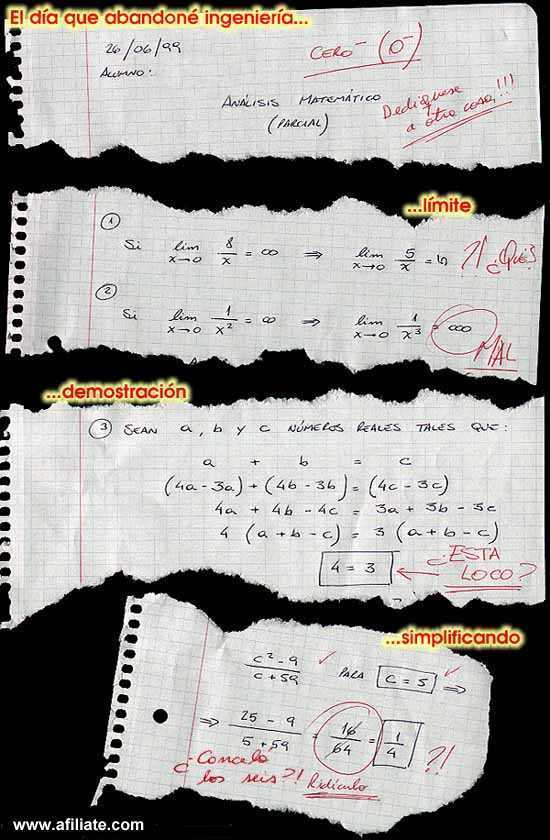 El día que abandoné ingeniería...
26/06/99
CERO⁻ (0⁻)
ALUMNO:
ANÁLISIS MATEMÁTICO
(PARCIAL)
Dedíquese
a otra cosa!!!
...límite
①
Si lim x→0 8/x = ∞ ⇒ lim x→0 5/x = ഗ ?! ¿Qué?
②
Si lim x→0 1/x² = ∞ ⇒ lim x→0 1/x³ = ooo
MAL
...demostración
③ SEAN a, b y c NÚMEROS REALES TALES QUE:
a + b = c
(4a-3a)+(4b-3b)=(4c-3c)
4a + 4b - 4c = 3a + 3b - 3c
4 (a+b-c) = 3 (a+b-c)
4 = 3 ← ¿ESTA
LOCO?
...simplificando
c²-9 / c+59 ✓ PARA c = 5 ✓ ⇒
⇒ 25-9 / 5+59 = 16/64 = 1/4 ?!
¿Cancela
los seis?! Ridículo
www.afiliate.com